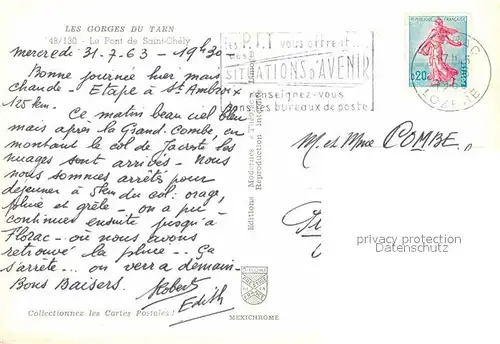 LES GORGES DU TARN
48/130 - Le Pont de Saint-Chély
Mercredi 31.7.63 - 19h30 -
Bonne journée hier mais
chaude - Etape à St Ambroix
125 km.
Ce matin beau ciel bleu
mais après la Grand'Combe, en
montant le col de Jalcreste les
nuages sont arrivés - Nous
nous sommes arrêtés pour
déjeuner à 5km du col: orage,
pluie et grêle - on a pu
continuer ensuite jusqu'à
Florac - où nous avons
retrouvé la pluie - Ça
s'arrête... on verra demain -
Bons Baisers.
Robert
Edith
Collectionnez les Cartes Postales !
MEXICHROME
Editions Modernes
Reproduction
les P.T.T vous offrent
des
SITUATIONS D'AVENIR
renseignez-vous
dans les bureaux de poste
REPUBLIQUE FRANÇAISE
0,20
LOZERE
M. et Mme COMBE
privacy protection
Datenschutz